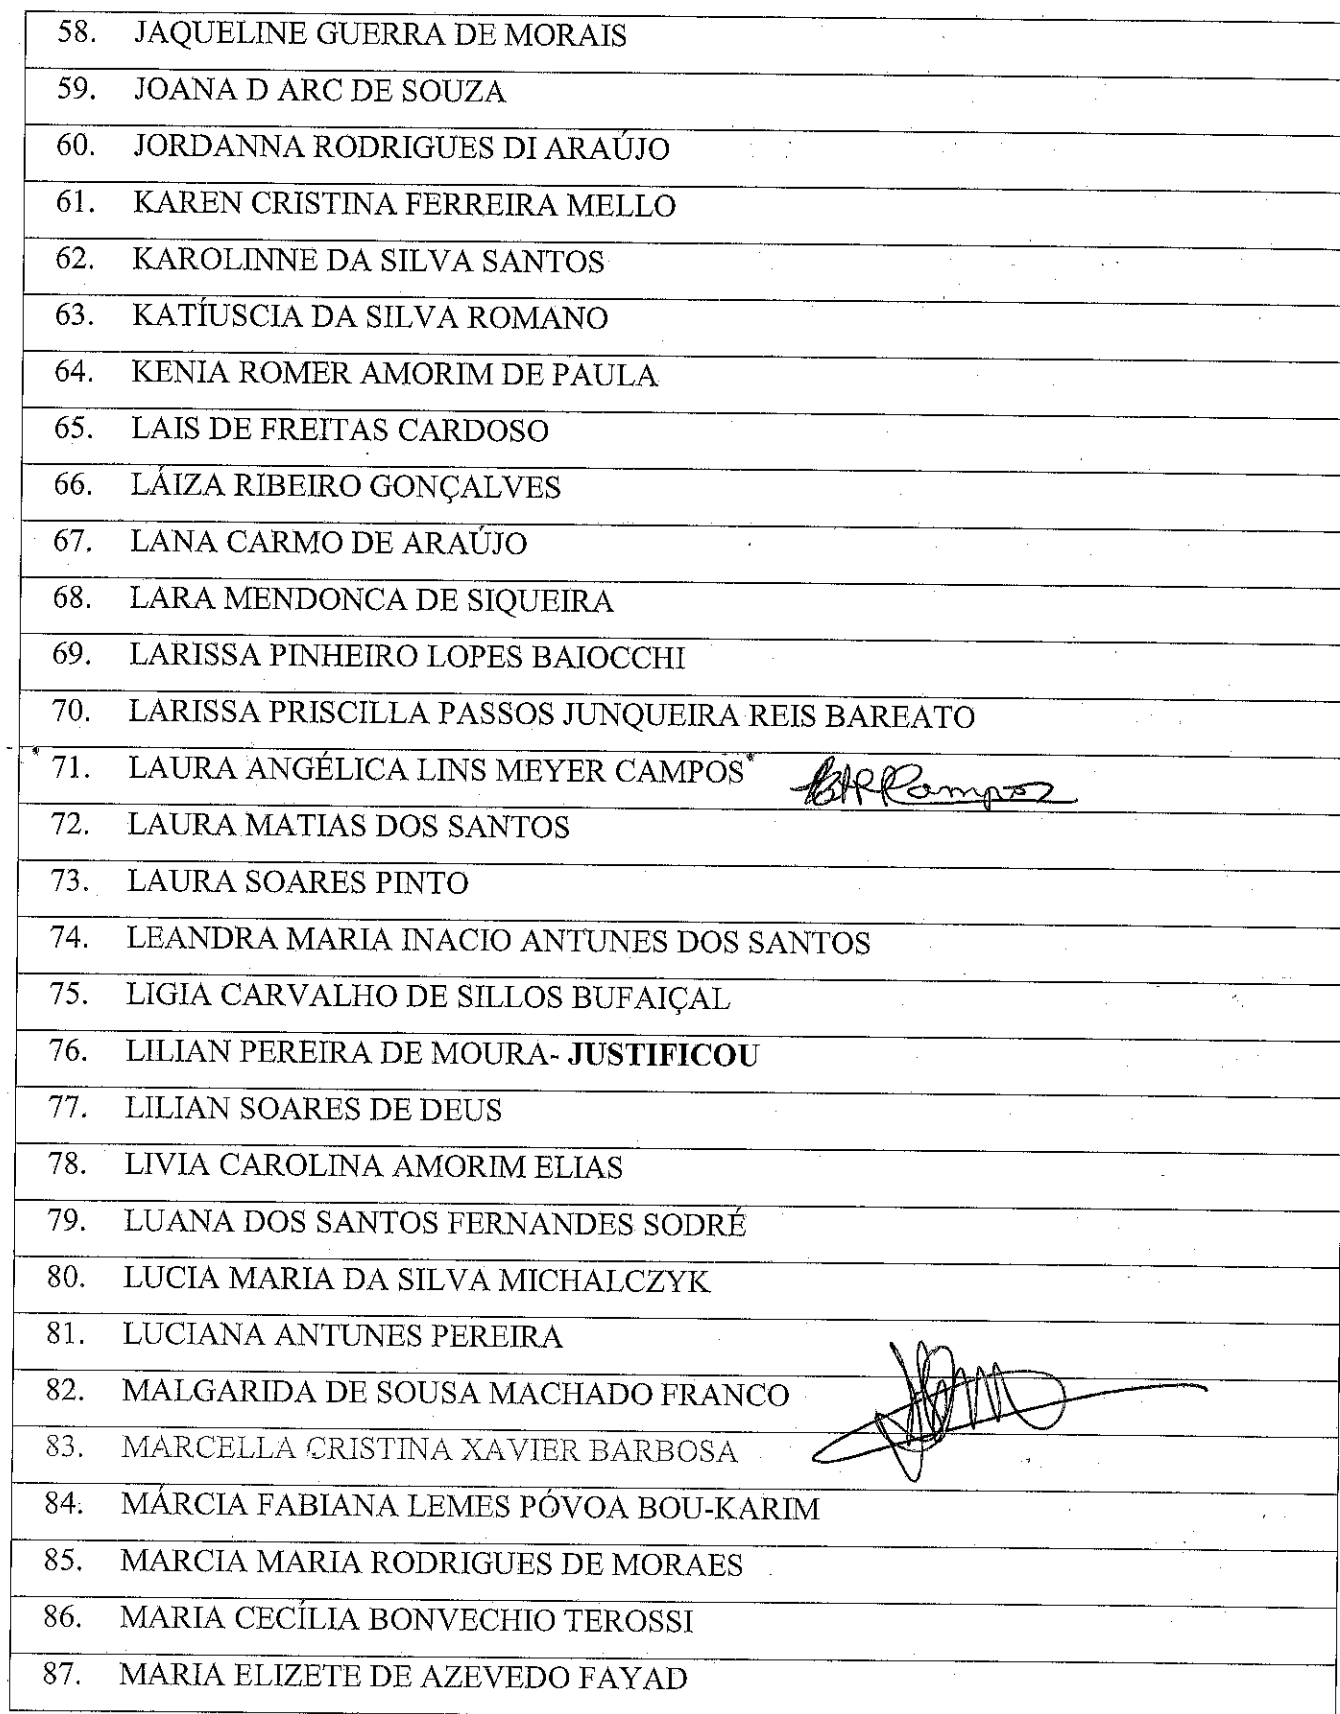 58. JAQUELINE GUERRA DE MORAIS
59. JOANA D ARC DE SOUZA
60. JORDANNA RODRIGUES DI ARAÚJO
61. KAREN CRISTINA FERREIRA MELLO
62. KAROLINNE DA SILVA SANTOS
63. KATÍUSCIA DA SILVA ROMANO
64. KENIA ROMER AMORIM DE PAULA
65. LAIS DE FREITAS CARDOSO
66. LÁIZA RIBEIRO GONÇALVES
67. LANA CARMO DE ARAÚJO
68. LARA MENDONCA DE SIQUEIRA
69. LARISSA PINHEIRO LOPES BAIOCCHI
70. LARISSA PRISCILLA PASSOS JUNQUEIRA REIS BAREATO
71. LAURA ANGÉLICA LINS MEYER CAMPOS
72. LAURA MATIAS DOS SANTOS
73. LAURA SOARES PINTO
74. LEANDRA MARIA INACIO ANTUNES DOS SANTOS
75. LIGIA CARVALHO DE SILLOS BUFAIÇAL
76. LILIAN PEREIRA DE MOURA- JUSTIFICOU
77. LILIAN SOARES DE DEUS
78. LIVIA CAROLINA AMORIM ELIAS
79. LUANA DOS SANTOS FERNANDES SODRÉ
80. LUCIA MARIA DA SILVA MICHALCZYK
81. LUCIANA ANTUNES PEREIRA
82. MALGARIDA DE SOUSA MACHADO FRANCO
83. MARCELLA CRISTINA XAVIER BARBOSA
84. MÁRCIA FABIANA LEMES PÓVOA BOU-KARIM
85. MARCIA MARIA RODRIGUES DE MORAES
86. MARIA CECÍLIA BONVECHIO TEROSSI
87. MARIA ELIZETE DE AZEVEDO FAYAD